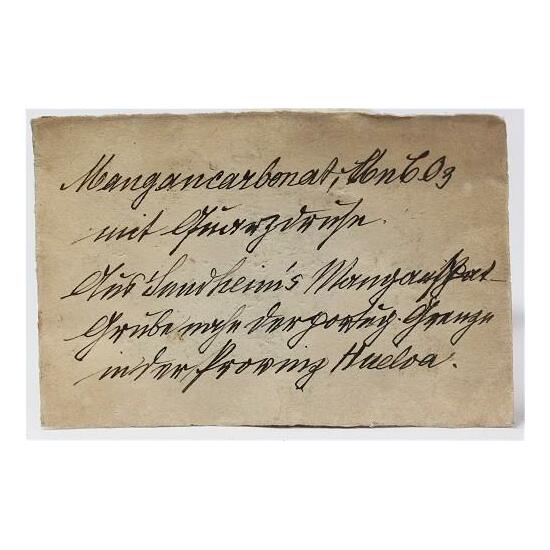 Mangancarbonat, MnCO3
mit Quarzdruse.
Aus Sundheim's Manganspat-
Grube nahe der portug. Grenze
in der Provinz Huelva.